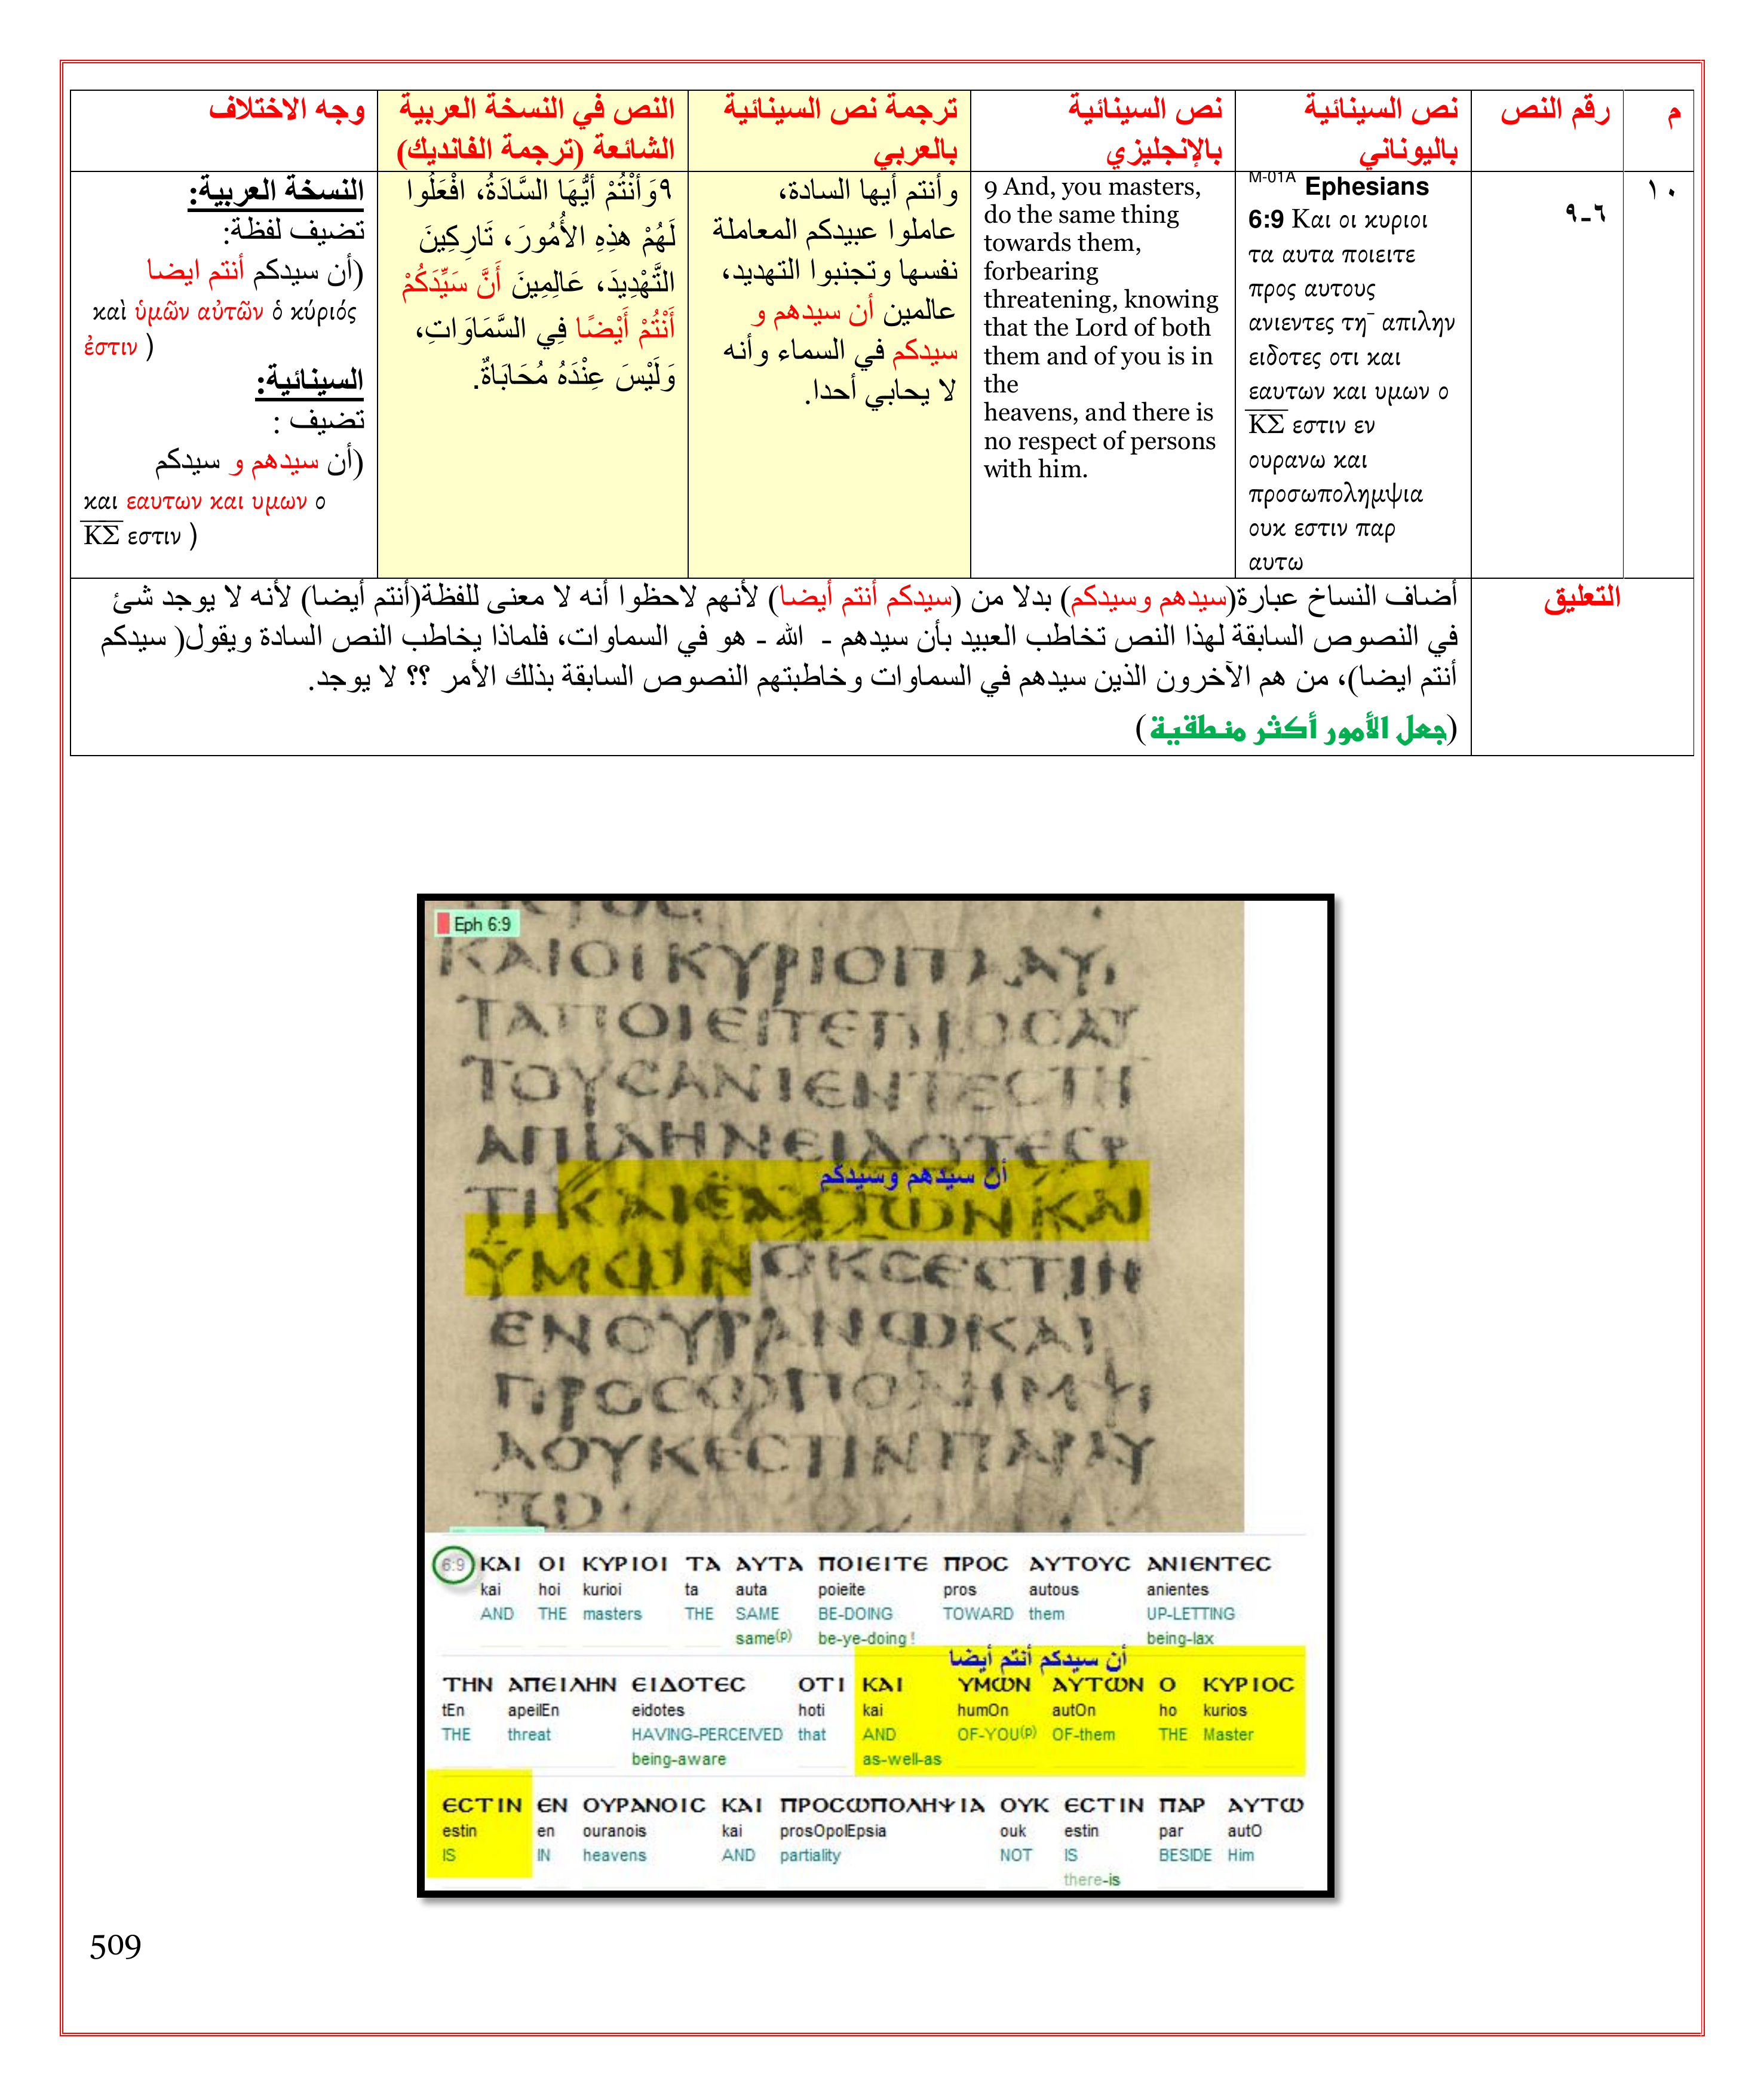 م
رقم النص
نص السينائية
باليوناني
نص السينائية
بالإنجليزي
ترجمة نص السينائية
بالعربي
النص في النسخة العربية
الشائعة (ترجمة الفانديك)
وجه الاختلاف
١٠
٦-٩
M-01A Ephesians
6:9 Και οι κυριοι
τα αυτα ποιειτε
προς αυτους
ανιεντες τη¯ απιλην
ειδοτες οτι και
εαυτων και υμων ο
ΚΣ εστιν εν
ουρανω και
προσωπολημψια
ουκ εστιν παρ
αυτω
9 And, you masters,
do the same thing
towards them,
forbearing
threatening, knowing
that the Lord of both
them and of you is in
the
heavens, and there is
no respect of persons
with him.
وأنتم أيها السادة،
عاملوا عبيدكم المعاملة
نفسها وتجنبوا التهديد،
عالمين أن سيدهم و
سيدكم في السماء وأنه
لا يحابي أحدا.
٩وَأَنْتُمْ أَيُّهَا السَّادَةُ، افْعَلُوا
لَهُمْ هذِهِ الأُمُورَ، تَارِكِينَ
التَّهْدِيدَ، عَالِمِينَ أَنَّ سَيِّدَكُمْ
أَنْتُمْ أَيْضًا فِي السَّمَاوَاتِ،
وَلَيْسَ عِنْدَهُ مُحَابَاةٌ.
النسخة العربية:
تضيف لفظة:
(أن سيدكم أنتم ايضا
καὶ ὑμῶν αὐτῶν ὁ κύριός
ἐστιν )
السينائية:
تضيف :
(أن سيدهم و سيدكم
και εαυτων και υμων ο
ΚΣ εστιν )
التعليق
أضاف النساخ عبارة(سيدهم وسيدكم) بدلا من (سيدكم أنتم أيضا) لأنهم لاحظوا أنه لا معنى للفظة(أنتم أيضا) لأنه لا يوجد شئ
في النصوص السابقة لهذا النص تخاطب العبيد بأن سيدهم - الله - هو في السماوات، فلماذا يخاطب النص السادة ويقول( سيدكم
أنتم ايضا)، من هم الآخرون الذين سيدهم في السماوات وخاطبتهم النصوص السابقة بذلك الأمر ؟؟ لا يوجد.
(جعل الأمور أكثر منطقية)
Eph 6:9
ΚΑΙΟΙΚΥΡΙΟΙΤΑΑΥ
ΤΑΠΟΙΕΙΤΕΠΡΟCΑΥ
ΤΟΥCΑΝΙΕΝΤΕCΤΗ
ΑΠΙΛΗΝΕΙΔΟΤΕCΟ
أن سيدهم وسيدكم
ΤΙΚΑΙΕΑΥΤΩΝΚΑΙ
ΥΜΩΝΟΚCΕCΤΙΝ
ΕΝΟΥΡΑΝΩΚΑΙ
ΠΡΟCΩΠΟΛΗΜΨΙ
ΑΟΥΚΕCΤΙΝΠΑΡΑΥ
ΤΩ
6:9 ΚΑΙ ΟΙ ΚΥΡΙΟΙ ΤΑ ΑΥΤΑ ΠΟΙΕΙΤΕ ΠΡΟC ΑΥΤΟΥC ΑΝΙΕΝΤΕC
kai hoi kurioi ta auta poieite pros autous anientes
AND THE masters THE SAME BE-DOING TOWARD them UP-LETTING
same(p) be-ye-doing ! being-lax
أن سيدكم أنتم أيضا
ΤΗΝ ΑΠΕΙΛΗΝ ΕΙΔΟΤΕC ΟΤΙ ΚΑΙ ΥΜΩΝ ΑΥΤΩΝ Ο ΚΥΡΙΟC
tEn apeilEn eidotes hoti kai humOn autOn ho kurios
THE threat HAVING-PERCEIVED that AND OF-YOU(p) OF-them THE Master
being-aware as-well-as
ΕCΤΙΝ ΕΝ ΟΥΡΑΝΟΙC ΚΑΙ ΠΡΟCΩΠΟΛΗΨΙΑ ΟΥΚ ΕCΤΙΝ ΠΑΡ ΑΥΤΩ
estin en ouranois kai prosOpolEpsia ouk estin par autO
IS IN heavens AND partiality NOT IS BESIDE Him
there-is
509